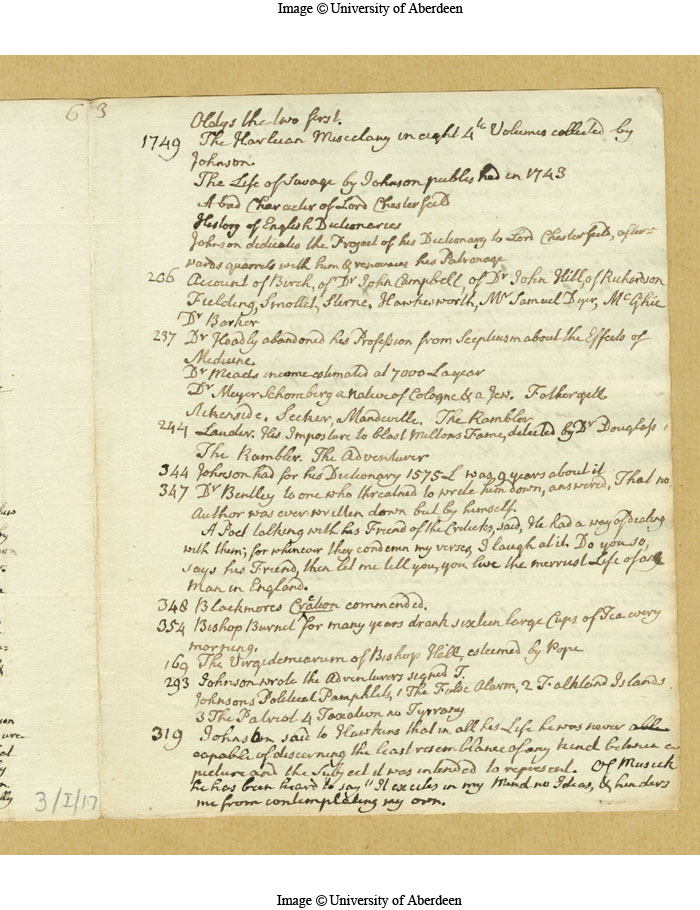 Image © University of Aberdeen
6 3
Oldys the two first.
1749 The Harleian Miscelany in eight 4to Volumes collected by
Johnson.
The Life of Savage by Johnson published in 1743
A bad Character of Lord Chesterfeild
History of English Dictionaries
Johnson dedicates the Project of his Dictionary to Lord Chesterfeild, after=
wards quarrels with him & renounces his Patronage
206 Account of Birch, of Dr John Campbell, of Dr John Hill, of Richardson
Fielding, Smollet, Sterne, Hawkesworth, Mr Samuel Dyer, McGhie
Dr Barker
237 Dr Hoadly abandoned his Profession from Scepticism about the Effects of
Medicine
Dr Meads income estimated at 7000 L a year
Dr Meyer Schomberg a native of Cologne & a Jew. Fothergill
Akenside. Secker, Mandeville. The Rambler
244 Lauder. His Imposture to blast Miltons Fame, detected by Dr Douglass
The Rambler. The Adventurer
344 Johnson had for his Dictionary 1575 L was 9 years about it
347 Dr Bentley to one who threatned to write him down, answered, That no
Author was ever written down but by himself.
A Poet talking with his Friend of the Criticks, said, He had a way of dealing
with them; for whenever they condemn my verses, I laugh at it. Do you so,
says his Friend, then let me tell you, you live the merriest Life of any
Man in England.
348 Blackmores Creation commended.
354 Bishop Burnet for many years drank sixteen large Cups of Tea every
morning.
169 The Virgidemiarum of Bishop Hall, esteemed by Pope
293 Johnson wrote the Adventurers signed T.
Johnsons Political Pamphlets, 1 The False Alarm, 2 Falkland Islands
3 The Patriot 4 Taxation no Tyrrany
319 Johnson said to Hawkins that in all his Life he was never able
capable of discerning the least resemblance of any kind between a
picture and the Subject it was intended to represent. Of Musick
he has been heard to say "It excites in my Mind no Ideas, & hinders
me from contemplating my own.
3/I/17
Image © University of Aberdeen